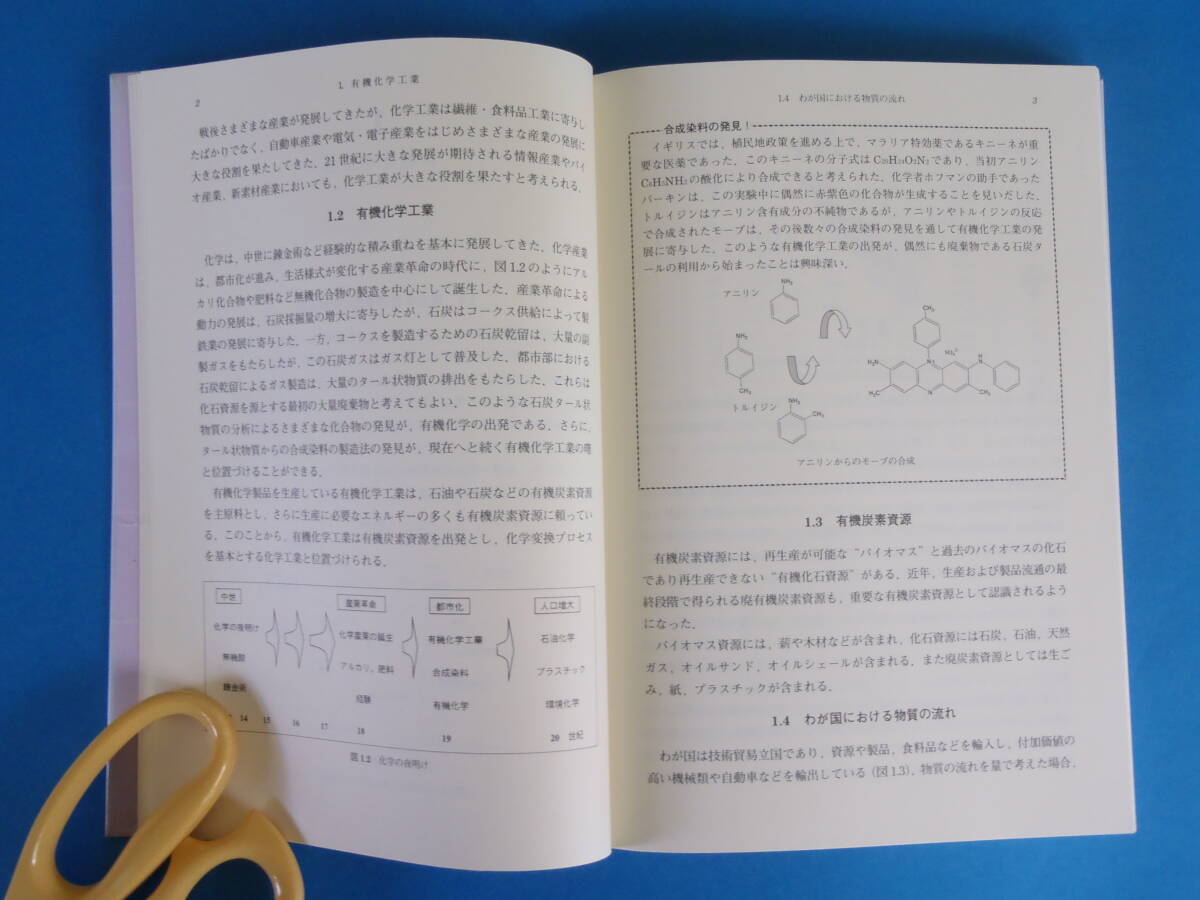 2
1. 有機化学工業
戦後さまざまな産業が発展してきたが，化学工業は繊維・食料品工業に寄与し
たばかりでなく，自動車産業や電気・電子産業をはじめさまざまな産業の発展に
大きな役割を果たしてきた．21世紀に大きな発展が期待される情報産業やバイ
オ産業，新素材産業においても，化学工業が大きな役割を果たすと考えられる．
1.2 有機化学工業
化学は，中世に錬金術など経験的な積み重ねを基本に発展してきた．化学産業
は，都市化が進み，生活様式が変化する産業革命の時代に，図1.2のようにアル
カリ化合物や肥料など無機化合物の製造を中心にして誕生した．産業革命による
動力の発展は，石炭採掘量の増大に寄与したが，石炭はコークス供給によって製
鉄業の発展に寄与した．一方，コークスを製造するための石炭乾留は，大量の副
製ガスをもたらしたが，この石炭ガスはガス灯として普及した．都市部における
石炭乾留によるガス製造は，大量のタール状物質の排出をもたらした．これらは
化石資源を源とする最初の大量廃棄物と考えてもよい．このような石炭タール状
物質の分析によるさまざまな化合物の発見が，有機化学の出発である．さらに，
タール状物質からの合成染料の製造法の発見が，現在へと続く有機化学工業の曙
と位置づけることができる．
有機化学製品を生産している有機化学工業は，石油や石炭などの有機炭素資源
を主原料とし，さらに生産に必要なエネルギーの多くも有機炭素資源に頼ってい
る．このことから，有機化学工業は有機炭素資源を出発とし，化学変換プロセス
を基本とする化学工業と位置づけられる．
中世 産業革命 都市化 人口増大
化学の夜明け 化学産業の誕生 有機化学工業 石油化学
無機酸 アルカリ，肥料 合成染料 プラスチック
錬金術 経験 有機化学 環境化学
14 15 16 17 18 19 20 世紀
図1.2 化学の夜明け
1.4 わが国における物質の流れ
3
合成染料の発見！
イギリスでは，植民地政策を進める上で，マラリア特効薬であるキニーネが重
要な医薬であった．このキニーネの分子式はC₂₀H₂₄O₂N₂であり，当初アニリン
C₆H₅NH₂の酸化により合成できると考えられた．化学者ホフマンの助手であった
パーキンは，この実験中に偶然に赤紫色の化合物が生成することを見いだした．
トルイジンはアニリン含有成分の不純物であるが，アニリンやトルイジンの反応
で合成されたモーブは，その後数々の合成染料の発見を通して有機化学工業の発
展に寄与した．このような有機化学工業の出発が，偶然にも廃棄物である石炭タ
ールの利用から始まったことは興味深い．
アニリン
NH₂
NH₂
CH₃
トルイジン
NH₂
CH₃
CH₃
H₂N
N⁺
H
N
H₃C
N
CH₃
アニリンからのモーブの合成
1.3 有機炭素資源
有機炭素資源には，再生産が可能な“バイオマス”と過去のバイオマスの化石
であり再生産できない“有機化石資源”がある．近年，生産および製品流通の最
終段階で得られる廃有機炭素資源も，重要な有機炭素資源として認識されるよう
になった．
バイオマス資源には，薪や木材などが含まれ，化石資源には石炭，石油，天然
ガス，オイルサンド，オイルシェールが含まれる．また廃炭素資源としては生ご
み，紙，プラスチックが含まれる．
1.4 わが国における物質の流れ
わが国は技術貿易立国であり，資源や製品，食料品などを輸入し，付加価値の
高い機械類や自動車などを輸出している（図1.3）．物質の流れを量で考えた場合，